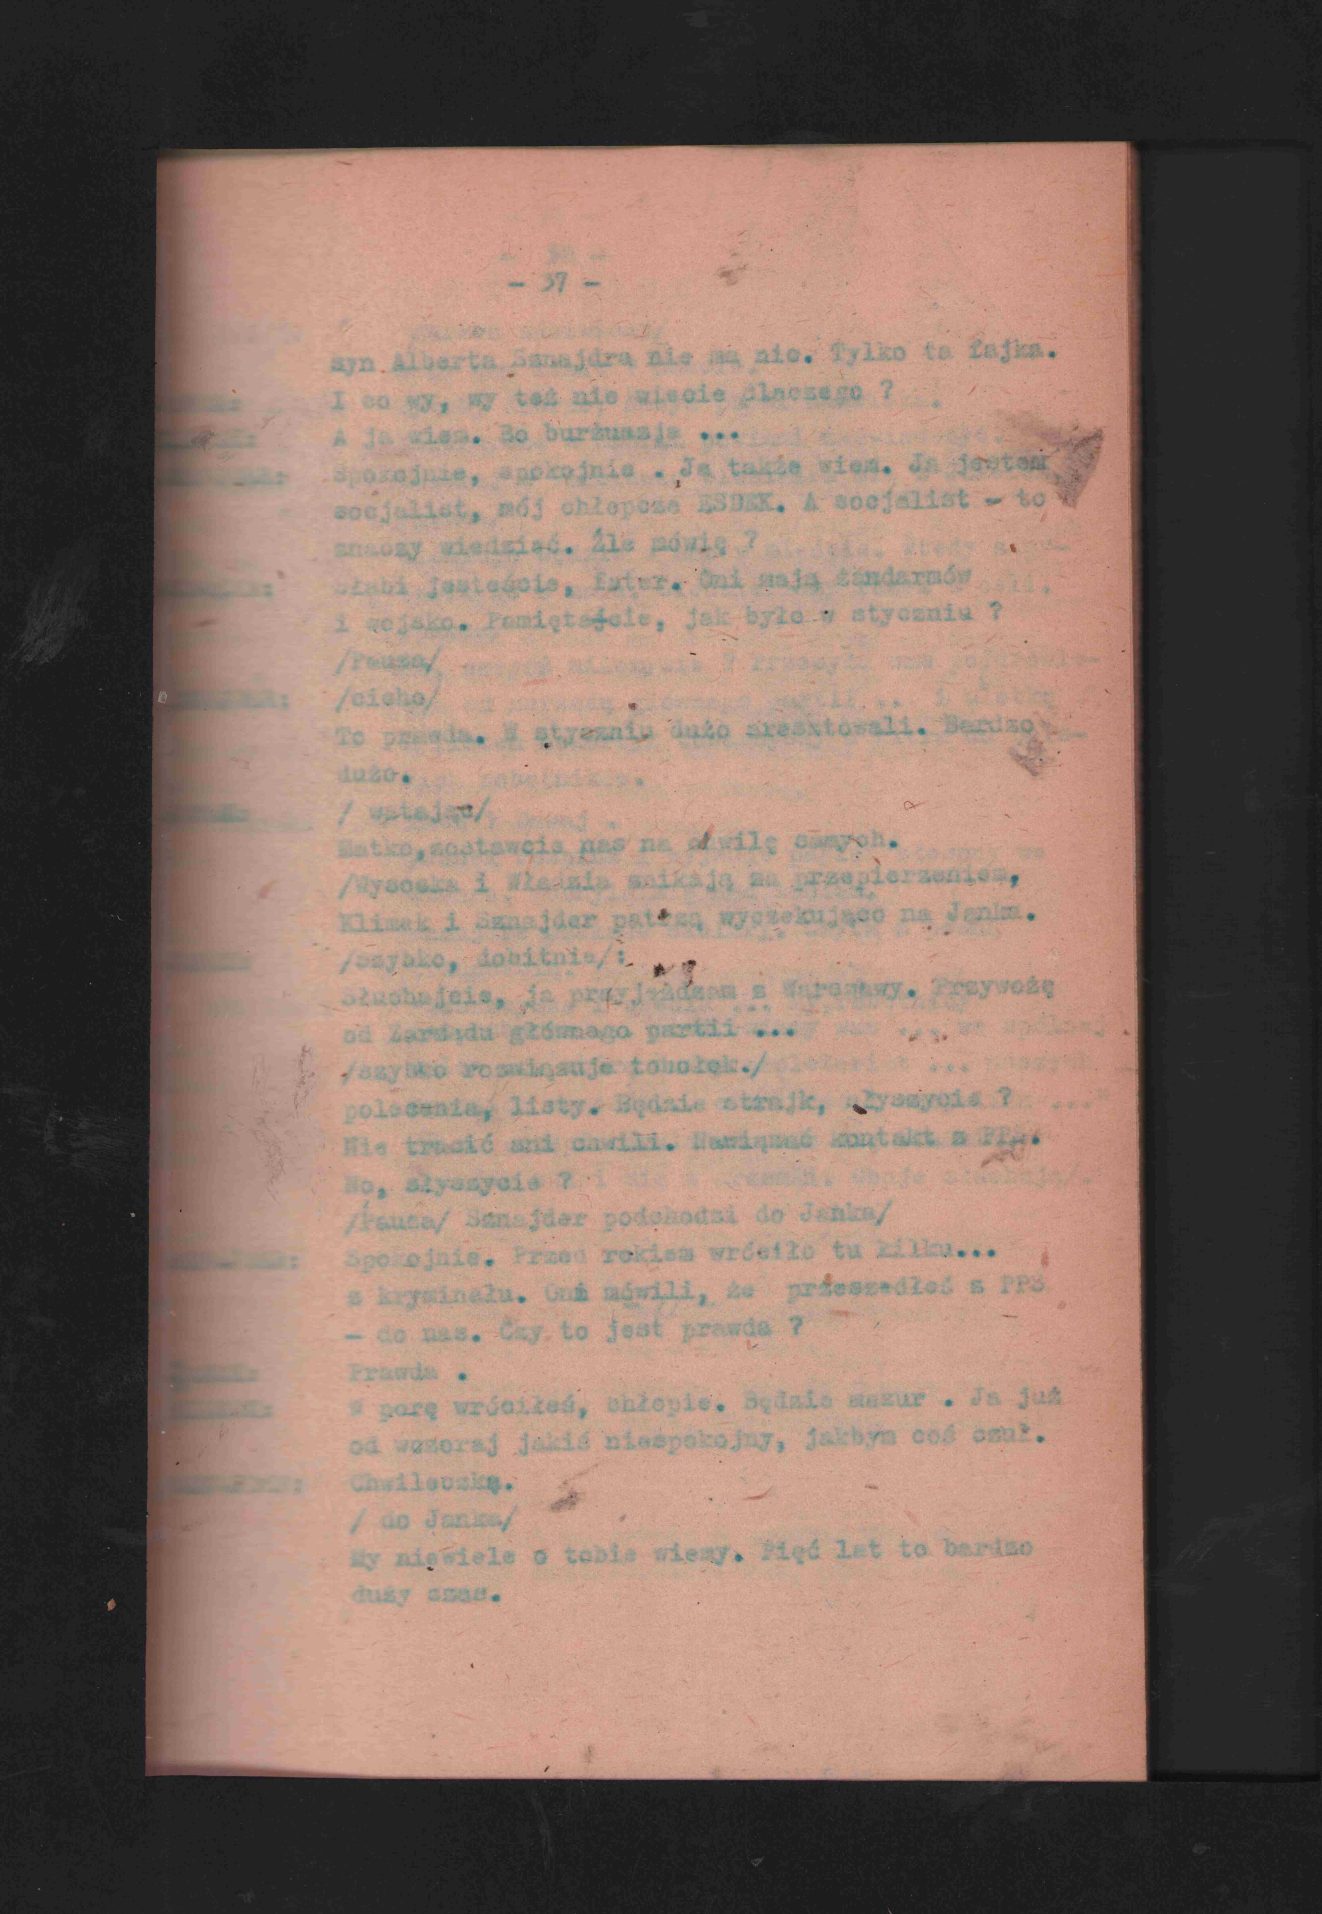 - 37 -
syn Alberta Sznajdra nie ma nic. Tylko ta fajka.
I co wy, wy też nie wiecie dlaczego ?
A ja wiem. Bo burżuazja ...
Spokojnie, spokojnie . Ja także wiem. Ja jestem
socjalist, mój chłopcze ESDEK. A socjalist - to
znaczy wiedzieć. Źle mówię ?
Słabi jesteście, fater. Oni mają żandarmów
i wojsko. Pamiętajcie, jak było w styczniu ?
/Pauza/
/cicho/
To prawda. W styczniu dużo aresztowali. Bardzo
dużo.
/ wstając/
Matko,zostawcie nas na chwilę samych.
/Wysocka i Władzia znikają za przepierzeniem,
Klimek i Sznajder patrzą wyczekująco na Janka.
/szybko, dobitnie/:
Słuchajcie, ja przyjeżdżam z Warszawy. Przywożę
od Zarządu głównego partii ...
/szybko rozwiązuje tobołek./
polecenia, listy. Będzie strajk, słyszycie ?
Nie tracić ani chwili. Nawiązać kontakt z PPS.
No, słyszycie ?
/Pauza/ Sznajder podchodzi do Janka/
Spokojnie. Przed rokiem wróciło tu kilku...
z kryminału. Oni mówili, że przeszedłeś z PPS
- do nas. Czy to jest prawda ?
Prawda .
W porę wróciłeś, chłopie. Będzie mazur . Ja już
od wczoraj jakiś niespokojny, jakbym coś czuł.
Chwileczkę.
/ do Janka/
My niewiele o tobie wiemy. Pięć lat to bardzo
duży czas.